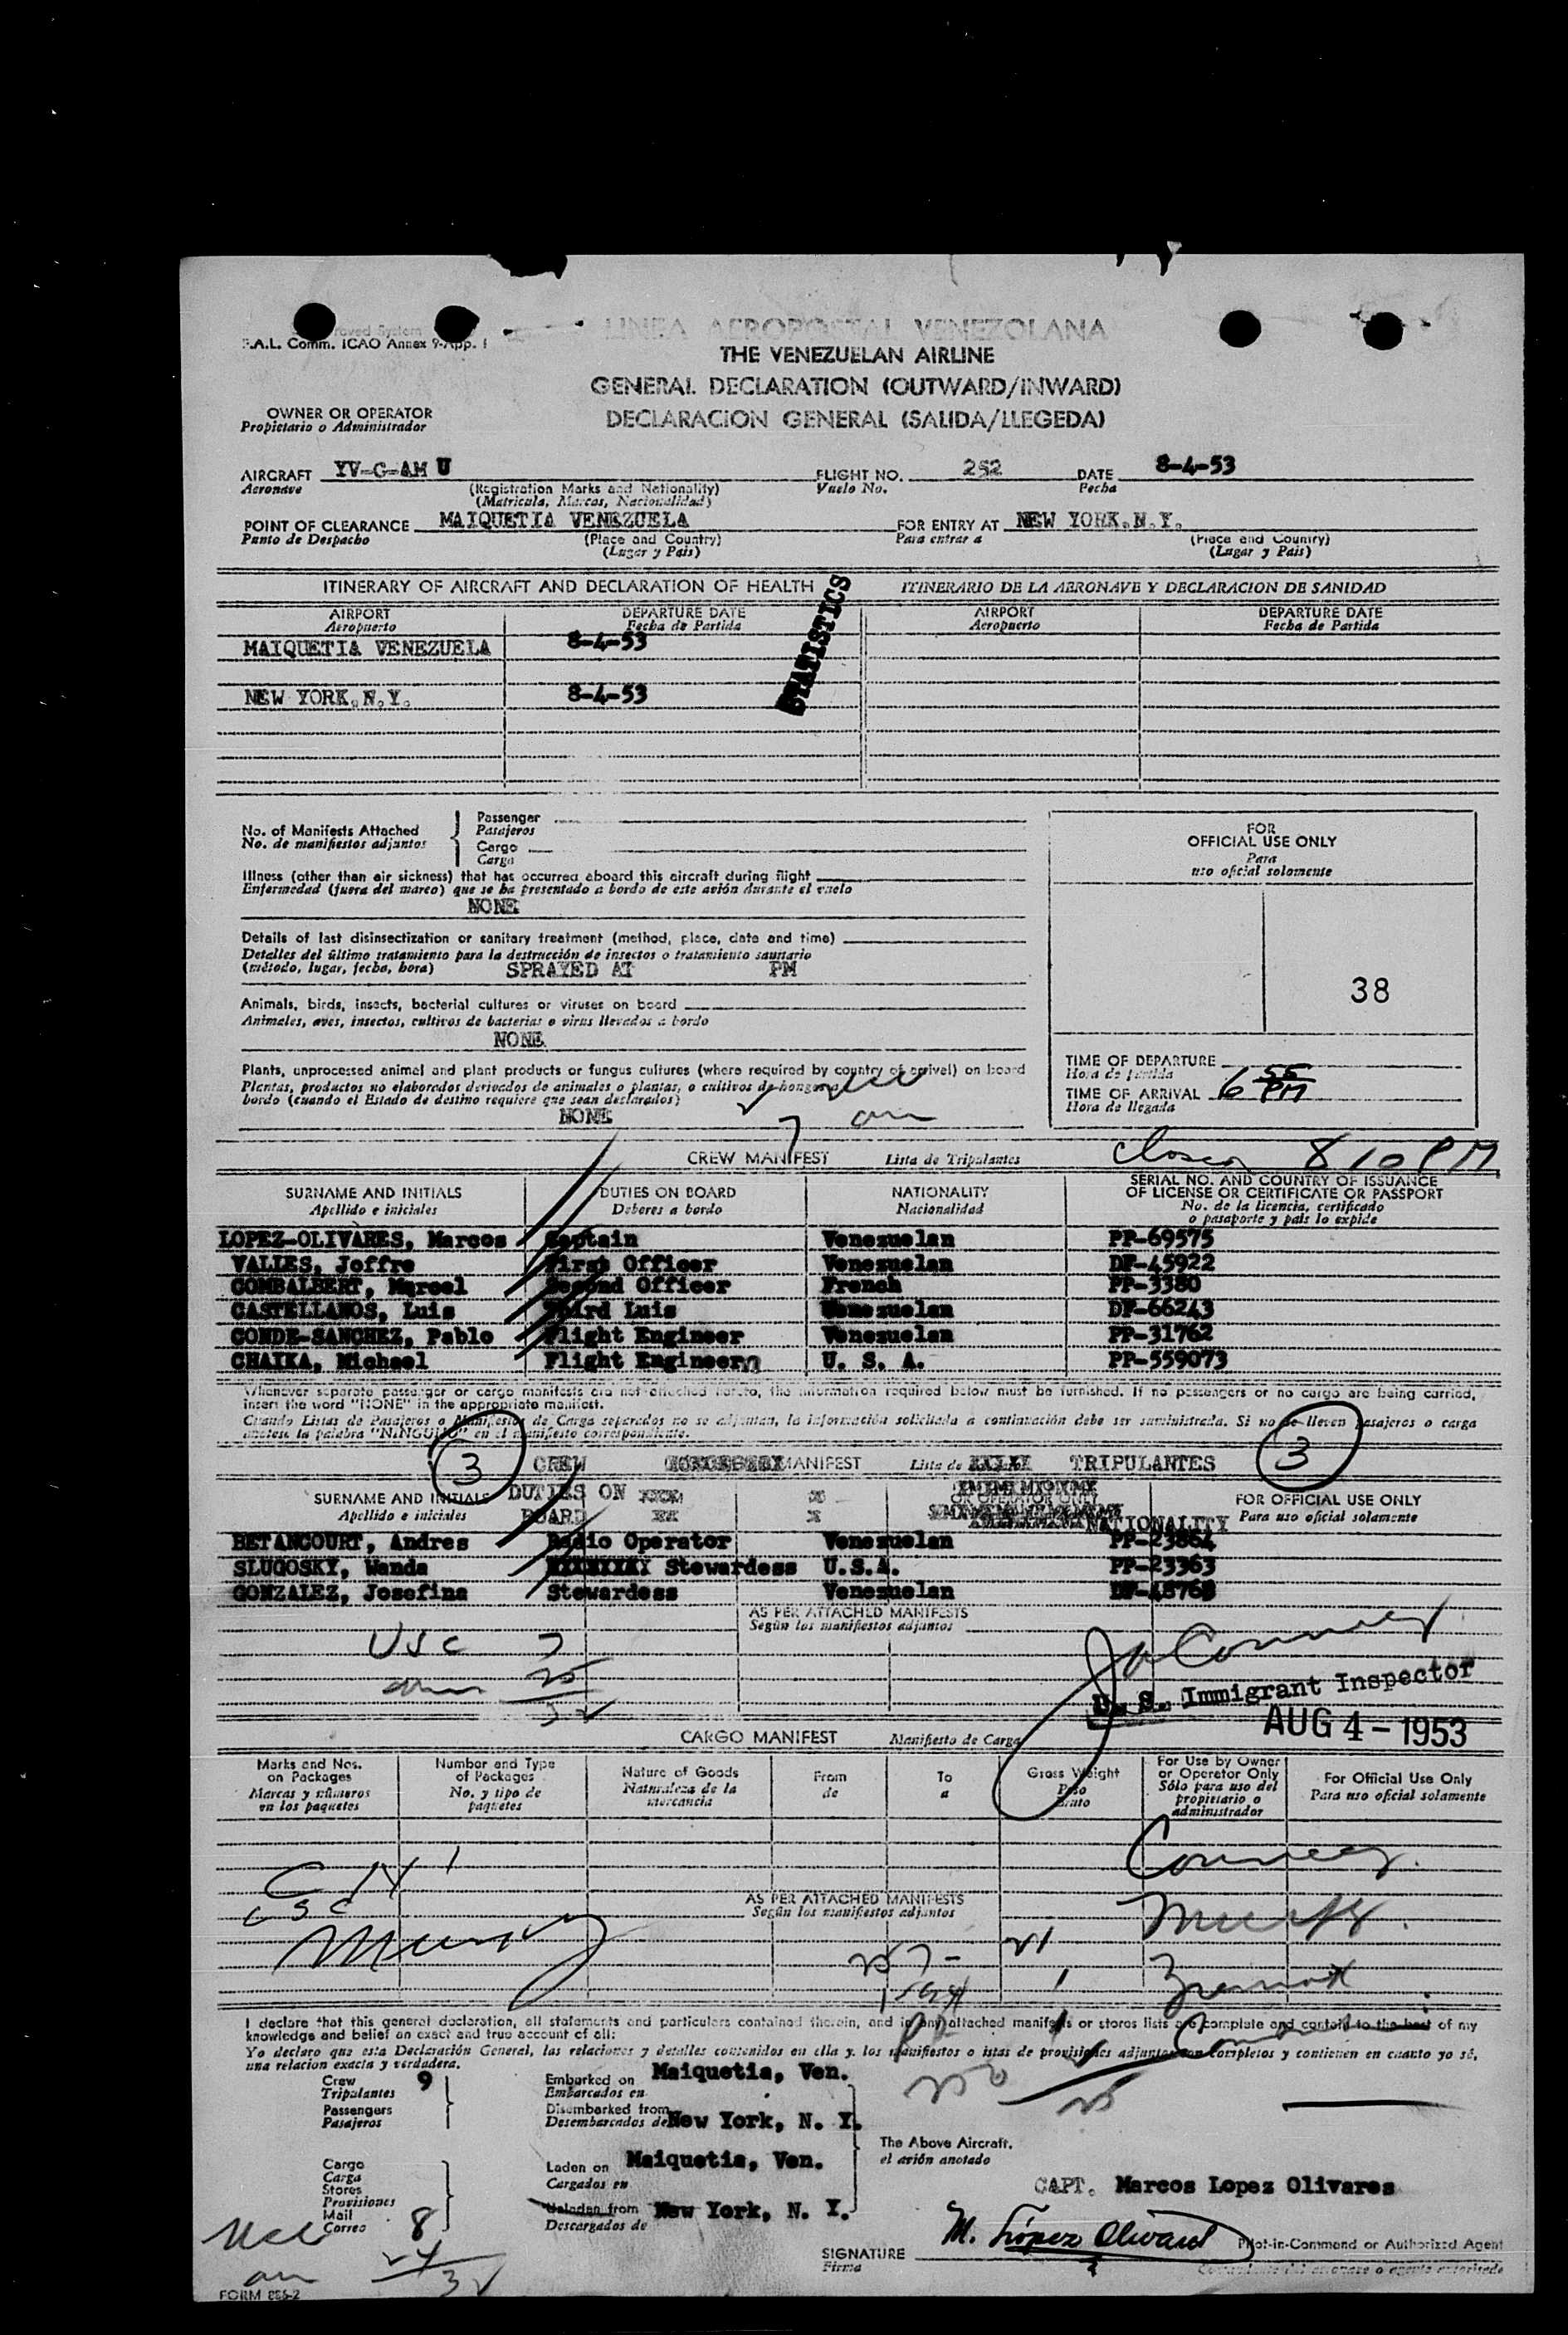 roved System
F.A.L. Comm. ICAO Annex 9-App. 1
LINEA AEROPOSTAL VENEZOLANA
THE VENEZUELAN AIRLINE
GENERAL DECLARATION (OUTWARD/INWARD)
DECLARACION GENERAL (SALIDA/LLEGEDA)
OWNER OR OPERATOR
Propietario o Administrador
AIRCRAFT YV-C-AM U FLIGHT NO. 252 DATE 8-4-53
Aeronave (Registration Marks and Nationality) Vuelo No. Fecha
(Matricula, Marcas, Nacionalidad)
POINT OF CLEARANCE MAIQUETIA VENEZUELA FOR ENTRY AT NEW YORK.N.Y.
Punto de Despacho (Place and Country) Para entrar a (Place and Country)
(Lugar y Pais) (Lugar y Pais)
ITINERARY OF AIRCRAFT AND DECLARATION OF HEALTH ITINERARIO DE LA AERONAVE Y DECLARACION DE SANIDAD
STATISTICS
AIRPORT DEPARTURE DATE AIRPORT DEPARTURE DATE
Aeropuerto Fecha de Partida Aeropuerto Fecha de Partida
MAIQUETIA VENEZUELA 8-4-53
NEW YORK.N.Y. 8-4-53
No. of Manifests Attached
No. de manifiestos adjuntos
Passenger
Pasajeros
Cargo
Carga
FOR
OFFICIAL USE ONLY
Para
uso oficial solomente
Illness (other than air sickness) that has occurred aboard this aircraft during flight
Enfermedad (fuera del mareo) que se ha presentado a bordo de este avión durante el vuelo
NONE
Details of last disinsectization or sanitary treatment (method, place, date and time)
Detalles del último tratamiento para la destrucción de insectos o tratamiento sanitario
(método, lugar, fecha, hora) SPRAYED AT PM
38
Animals, birds, insects, bacterial cultures or viruses on board
Animales, aves, insectos, cultivos de bacterias o virus llevados a bordo
NONE
Plants, unprocessed animal and plant products or fungus cultures (where required by country of arrival) on board
Plantas, productos no elaborados derivados de animales o plantas, o cultivos de hongos a
bordo (cuando el Estado de destino requiere que sean declarados)
NONE
TIME OF DEPARTURE
Hora de partida
TIME OF ARRIVAL 6 55 PM
Hora de llegada
CREW MANIFEST Lista de Tripulantes
8 10 PM
SURNAME AND INITIALS DUTIES ON BOARD NATIONALITY SERIAL NO. AND COUNTRY OF ISSUANCE
OF LICENSE OR CERTIFICATE OR PASSPORT
Apellido e iniciales Deberes a bordo Nacionalidad No. de la licencia, certificado
o pasaporte y pais lo expide
LOPEZ-OLIVARES, Marcos Captain Venezuelan PP-69575
VALLES, Joffre First Officer Venezuelan DP-45922
COMBALBERT, Marcel Second Officer French PP-3380
CASTELLANOS, Luis Third Luis Venezuelan DP-66243
CONDE-SANCHEZ, Pablo Flight Engineer Venezuelan PP-31762
CHAIKA, Michael Flight Engineer U. S. A. PP-559073
Whenever separate passenger or cargo manifests are not attached hereto, the information required below must be furnished. If no passengers or no cargo are being carried,
insert the word "NONE" in the appropriate manifest.
Cuando Listas de Pasajeros o Manifiestos de Carga separados no se adjuntan, la información solicitada a continuación debe ser suministrada. Si no se lleven pasajeros o carga
anotese la palabra "NINGUNO" en el manifiesto correspondiente.
3 CREW MANIFEST Lista de TRIPULANTES 3
SURNAME AND INITIALS DUTIES ON BOARD OR OPERATOR ONLY FOR OFFICIAL USE ONLY
Apellido e iniciales NATIONALITY Para uso oficial solamente
BETANCOURT, Andres Radio Operator Venezuelan PP-23864
SLUGOSKY, Wanda Stewardess U.S.A. PP-23363
GONZALEZ, Josefina Stewardess Venezuelan
AS PER ATTACHED MANIFESTS
Según los manifiestos adjuntos
USC 7
25
U. S. Immigrant Inspector
AUG 4-1953
CARGO MANIFEST Manifiesto de Carga
Marks and Nos. on Packages Number and Type of Packages Nature of Goods From To Gross Weight For Use by Owner or Operator Only For Official Use Only
Marcas y números en los paquetes No. y tipo de paquetes Naturaleza de la mercancia de a Peso Bruto Sólo para uso del propietario o administrador Para uso oficial solamente
AS PER ATTACHED MANIFESTS
Según los manifiestos adjuntos
I declare that this general declaration, all statements and particulars contained therein, and in any attached manifests or stores lists are complete and contain to the best of my
knowledge and belief an exact and true account of all:
Yo declaro que esta Declaración General, las relaciones y detalles contenidos en ella y. los manifiestos o istas de provisiones adjuntos son completos y contienen en cuanto yo sé,
una relacion exacta y verdadera.
Crew 9 Embarked on Maiquetia, Ven.
Tripulantes Embarcados en
Passengers Disembarked from New York, N. Y.
Pasajeros Desembarcados de
The Above Aircraft.
el avión anotado
Cargo Laden on Maiquetia, Ven.
Carga Cargados en
Stores
Provisiones
Mail Unladen from New York, N. Y.
Correo 8 Descargados de
CAPT. Marcos Lopez Olivares
SIGNATURE M. López Olivares Pilot-in-Command or Authorized Agent
Firma Comandante del aeronave o agente autorizado
FORM 885-2